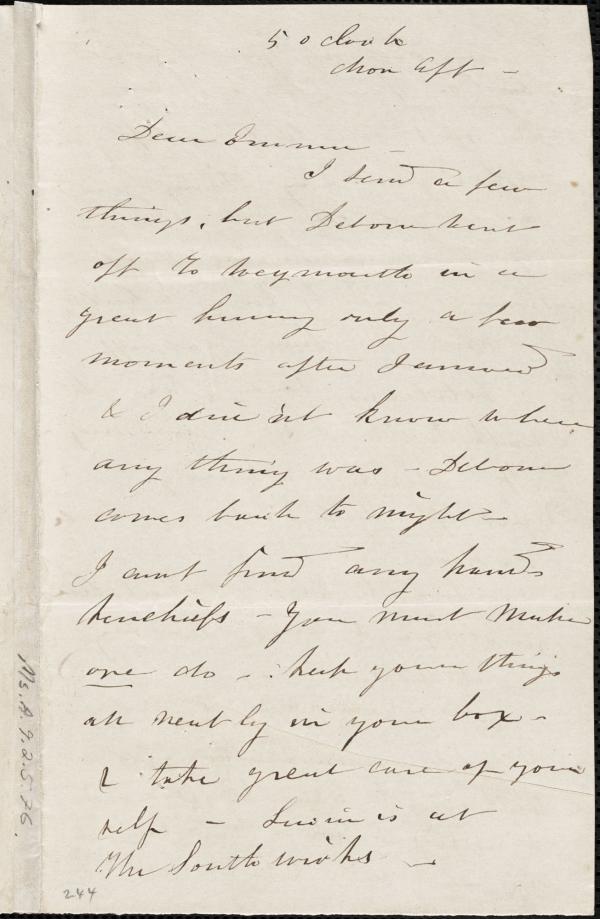 5 o clock
Mon Aft -
Dear Emma -
I send a few
things, but Debora went
off to Weymouth in a
great hurry only a few
moments after I arrived
& I did n't know where
any thing was - Debora
comes back to night -
I cant find any hand-
kerchiefs - You must make
one do - keep your things
all neatly in your box -
& take great care of your
self - Lucia is at
The Southwicks -
Ms.A.9.2.5.76.
244